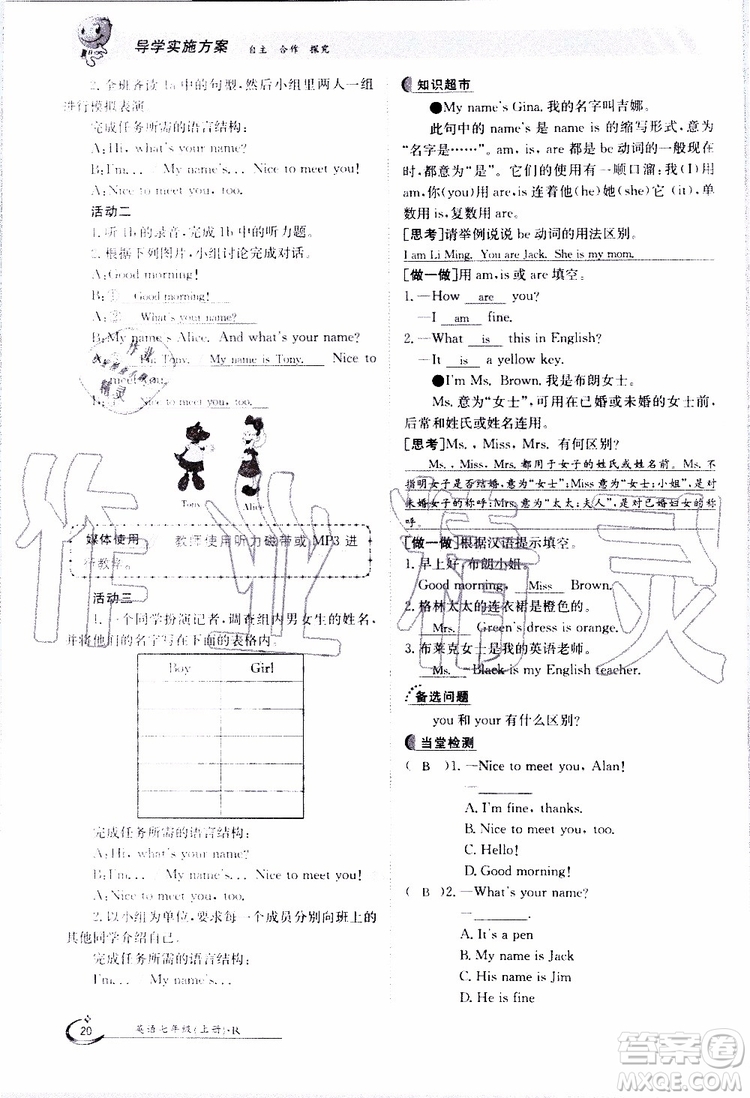 导学实施方案 自主 合作 探究
2.全班齐读 1a 中的句型,然后小组里两人一组
进行模拟表演
完成任务所需的语言结构:
A:Hi, what's your name?
B:I'm… My name's… Nice to meet you!
A:Nice to meet you, too.
活动二
1.听 1b 的录音,完成 1b 中的听力题。
2.根据下列图片,小组讨论完成对话。
A:Good morning!
B:① Good morning!
A:② What's your name?
B:My name's Alice. And what's your name?
A:③ I'm Tony. My name is Tony. Nice to
meet you!
B:④ Nice to meet you, too.
Tony Alice
媒体使用 教师使用听力磁带或 MP3 进
行教学。
活动三
1.一个同学扮演记者,调查组内男女生的姓名,
并将他们的名字写在下面的表格内。
Boy Girl
完成任务所需的语言结构:
A:Hi, what's your name?
B:I'm… My name's… Nice to meet you!
A:Nice to meet you, too.
2.以小组为单位,要求每一个成员分别向班上的
其他同学介绍自己。
完成任务所需的语言结构:
I'm… My name's…
20 英语七年级(上册)·R
知识超市
●My name's Gina. 我的名字叫吉娜。
此句中的 name's 是 name is 的缩写形式,意为
“名字是……”。am,is,are 都是 be 动词的一般现在
时,都意为“是”。它们的使用有一顺口溜:我(I)用
am,你(you)用 are,is 连着他(he)她(she)它(it),单
数用 is,复数用 are。
[思考]请举例说说 be 动词的用法区别。
I am Li Ming. You are Jack. She is my mom.
[做一做]用 am,is或 are 填空。
1.—How are you?
—I am fine.
2.—What is this in English?
—It is a yellow key.
●I'm Ms. Brown. 我是布朗女士。
Ms. 意为“女士”,可用在已婚或未婚的女子前,
后常和姓氏或姓名连用。
[思考]Ms. , Miss, Mrs. 有何区别?
Ms. , Miss, Mrs. 都用于女子的姓氏或姓名前。Ms. 不
指明女子是否结婚,意为“女士”;Miss 意为“女士;小姐”,是对
未婚女子的称呼;Mrs. 意为“太太;夫人”,是对已婚妇女的称
呼。
[做一做]根据汉语提示填空。
1.早上好,布朗小姐。
Good morning, Miss Brown.
2.格林太太的连衣裙是橙色的。
Mrs. Green's dress is orange.
3.布莱克女士是我的英语老师。
Ms. Black is my English teacher.
备选问题
you 和 your 有什么区别?
当堂检测
( B )1.—Nice to meet you, Alan!
—
A. I'm fine, thanks.
B. Nice to meet you, too.
C. Hello!
D. Good morning!
( B )2.—What's your name?
— .
A. It's a pen
B. My name is Jack
C. His name is Jim
D. He is fine
作业精灵
答案圈
MXQE.COM